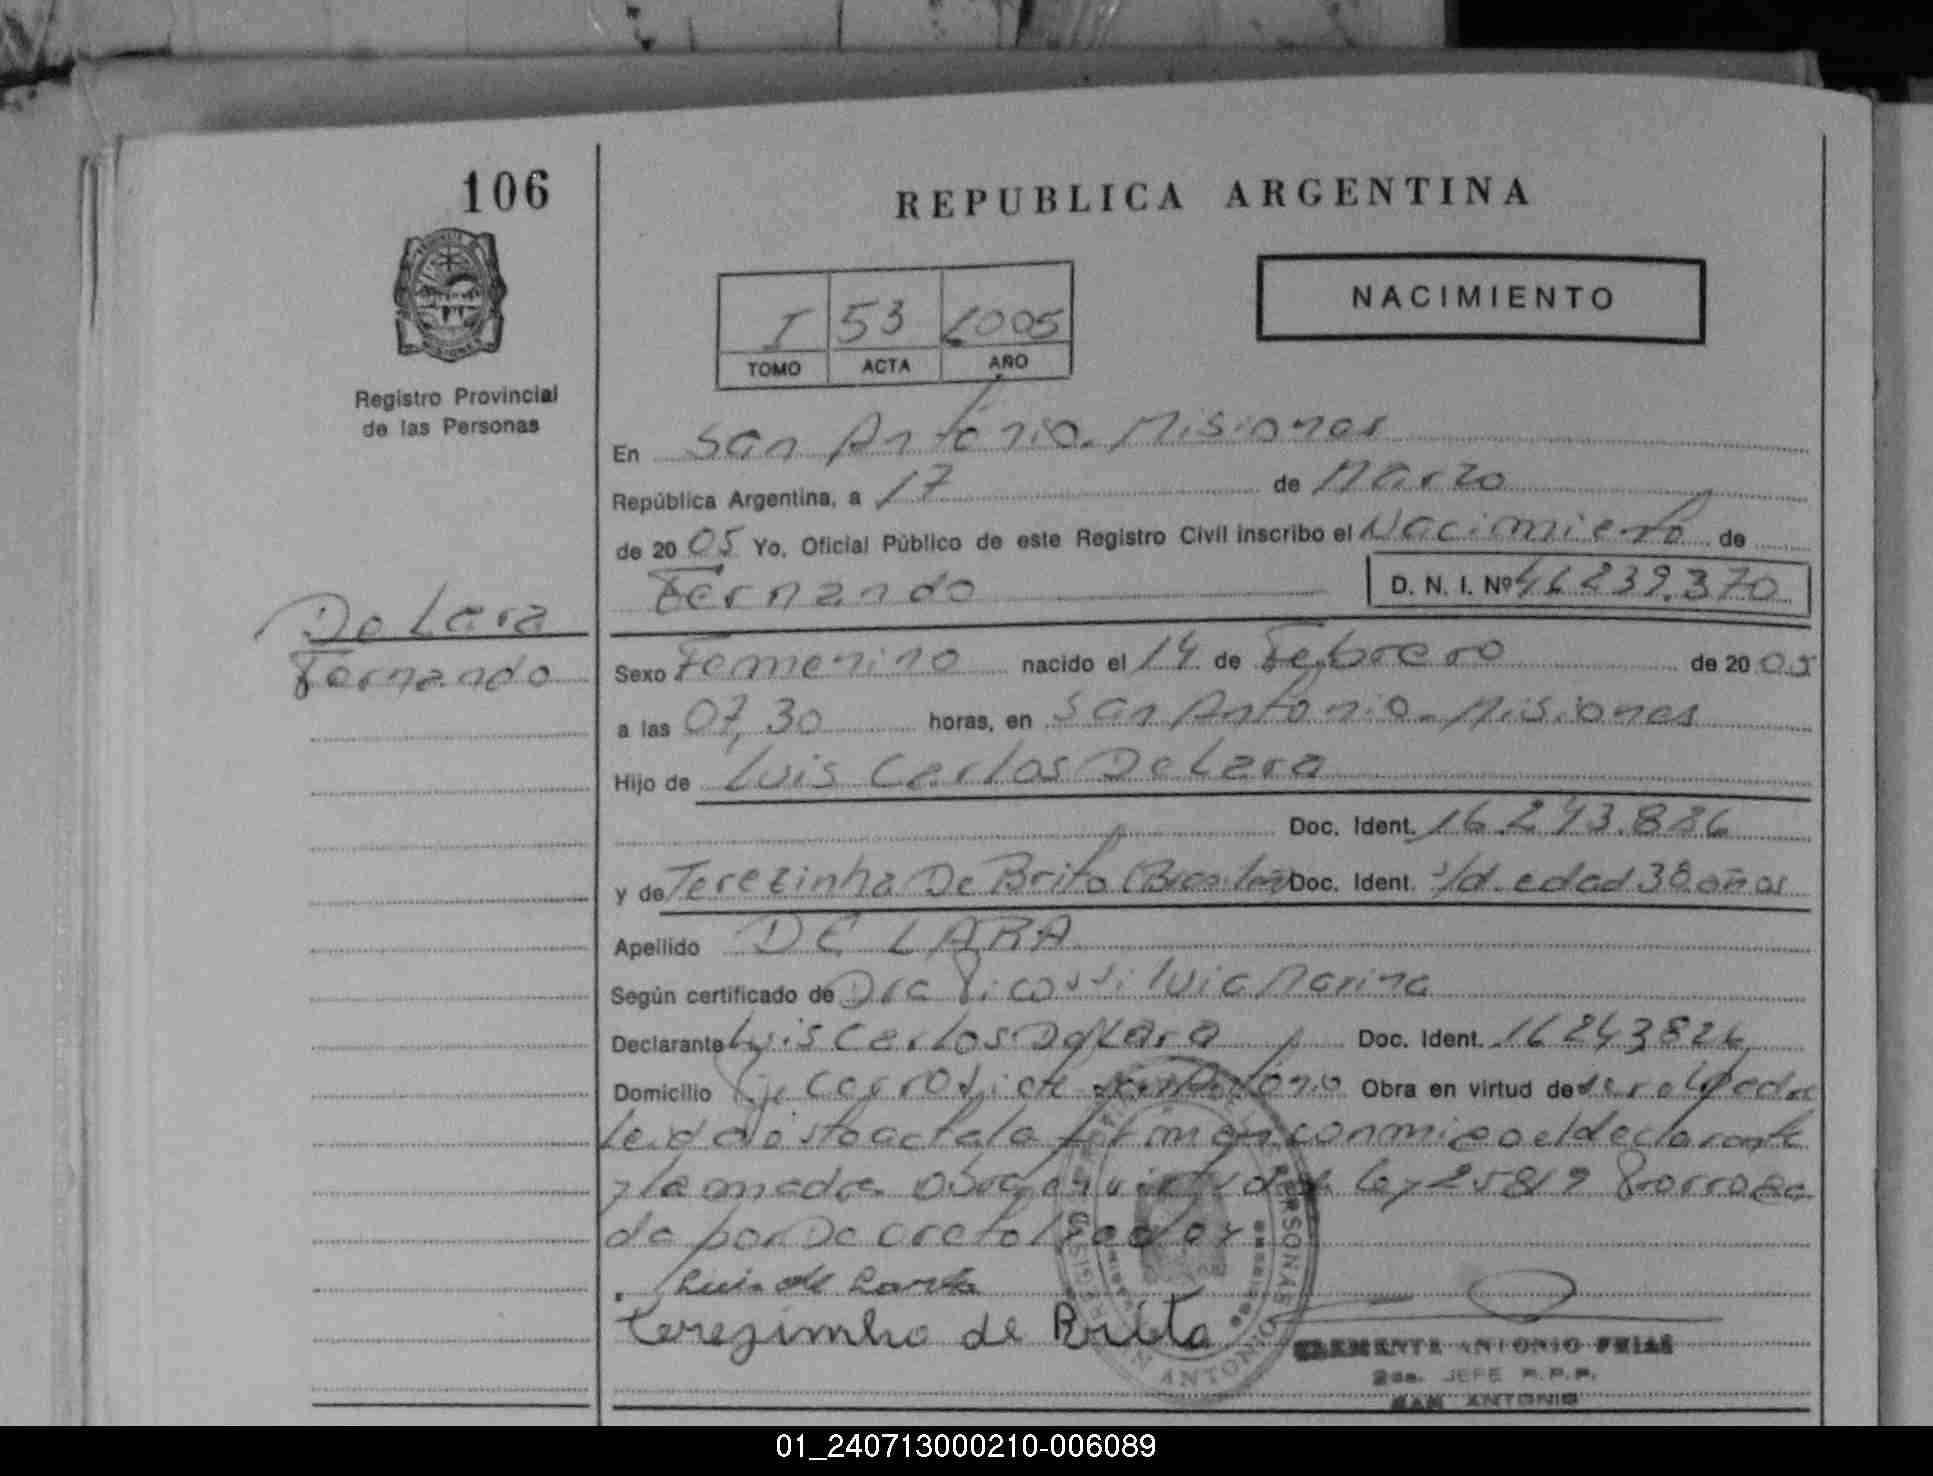 106
REPUBLICA ARGENTINA
NACIMIENTO
I 53 2005
TOMO ACTA AÑO
Registro Provincial
de las Personas
En San Antonio. Misiones
República Argentina, a 17 de Marzo
de 20 05 Yo, Oficial Público de este Registro Civil inscribo el Nacimiento de
Fernando D. N. I. Nº 46.239.370
De Lara
Fernando
Sexo Femenino nacido el 14 de Febrero de 20 05
a las 07,30 horas, en San Antonio. Misiones
Hijo de Luis Carlos De Lara
Doc. Ident. 16.243.826
y de Terezinha De Brito (Brasileña) Doc. Ident. s/d. edad 38 años
Apellido DE LARA
Según certificado de Dra Marina
Declarante Luis Carlos De Lara Doc. Ident. 16243826
Domicilio San Antonio Obra en virtud de ser el padre
Leida esta acta la firman conmigo el declarante
y la madre obra en virtud de la Ley 25819 Prorroga
da por Decreto
Luis de Lara
terezinha de Brito
CLEMENTE ANTONIO FRIAS
JEFE R.P.P.
SAN ANTONIO
01_240713000210-006089